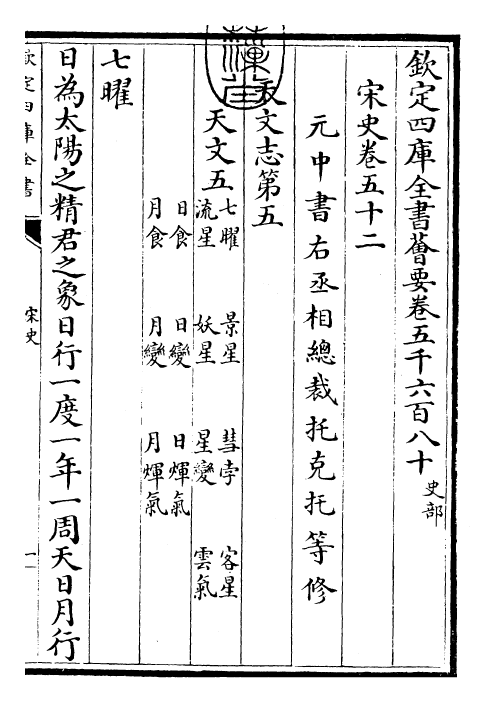 欽定四庫全書薈要卷五千六百八十 史部
宋史卷五十二
元中書右丞相總裁托克托等修
天文志第五
天文五
七曜 景星 彗孛 客星
流星 妖星 星變 雲氣
日食 日變 日煇氣
月食 月變 月煇氣
七曜
日為太陽之精君之象日行一度一年一周天日月行
欽定四庫全書
宋史
一